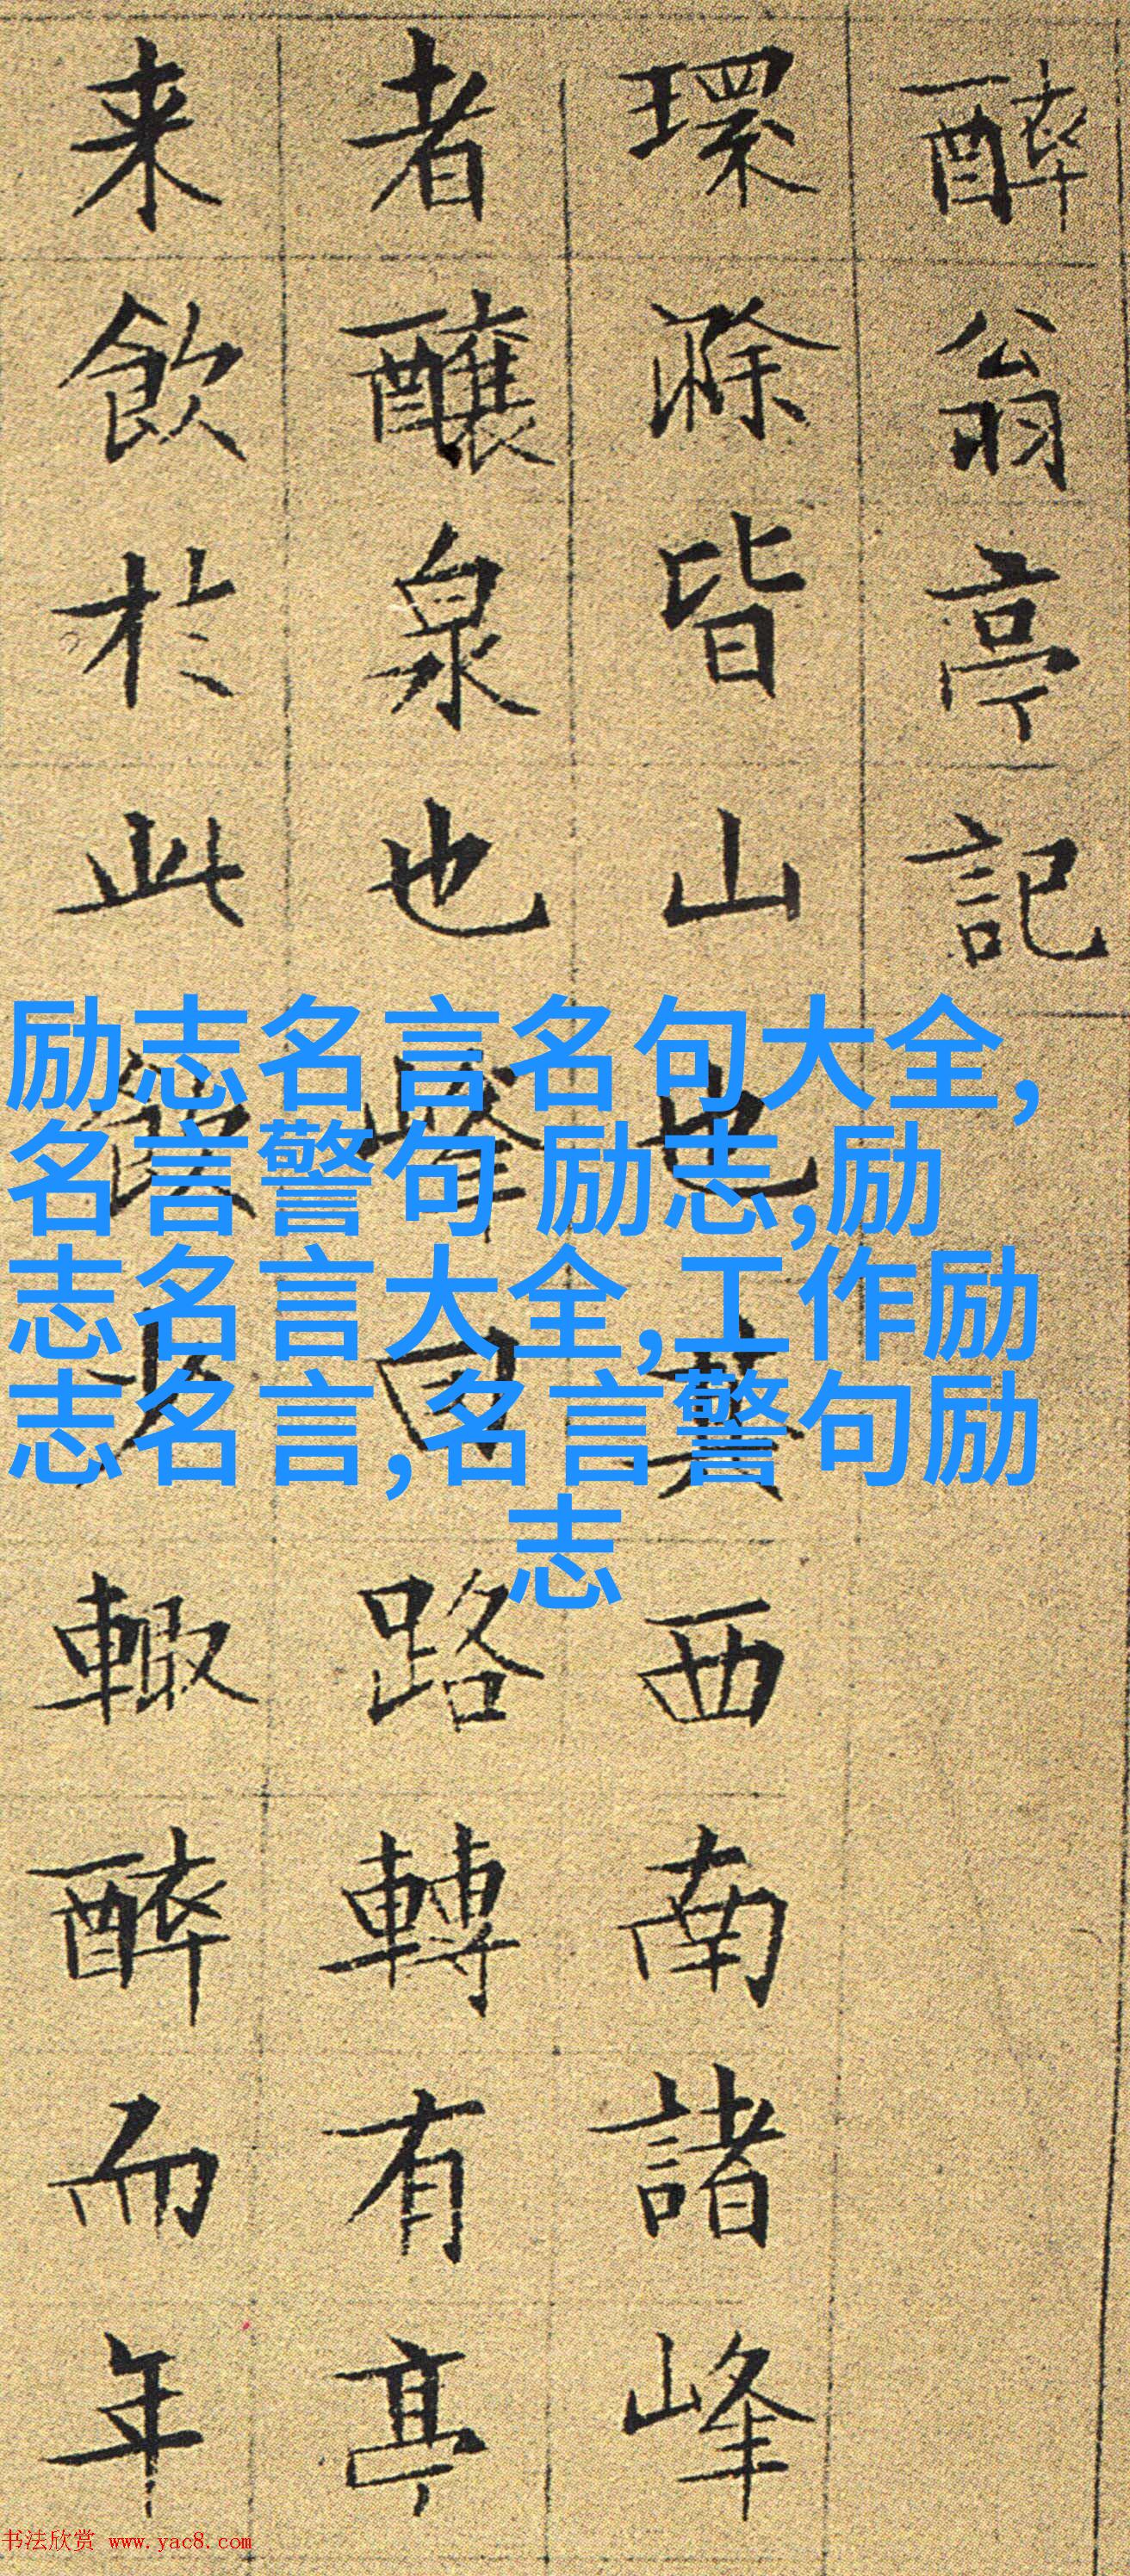 醉翁亭記
環滁皆山也其西南諸峰
者釀泉也峰回路轉有亭
来飲於此飲少輒醉而年
励志名言名句大全,
名言警句 励志,励
志名言大全,工作励
志名言,名言警句励
志
书法欣赏 www.yac8.com